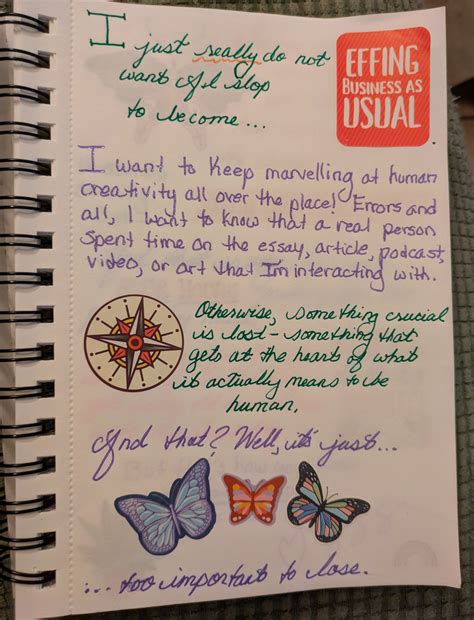 I just really do not
want AI slop
to become...
EFFING
BUSINESS AS
USUAL
I want to keep marvelling at human
creativity all over the place! Errors and
all, I want to know that a real person
spent time on the essay, article, podcast,
video, or art that I'm interacting with.
Otherwise, something crucial
is lost - something that
gets at the heart of what
it actually means to be
human.
And that? Well, it's just...
... too important to lose.